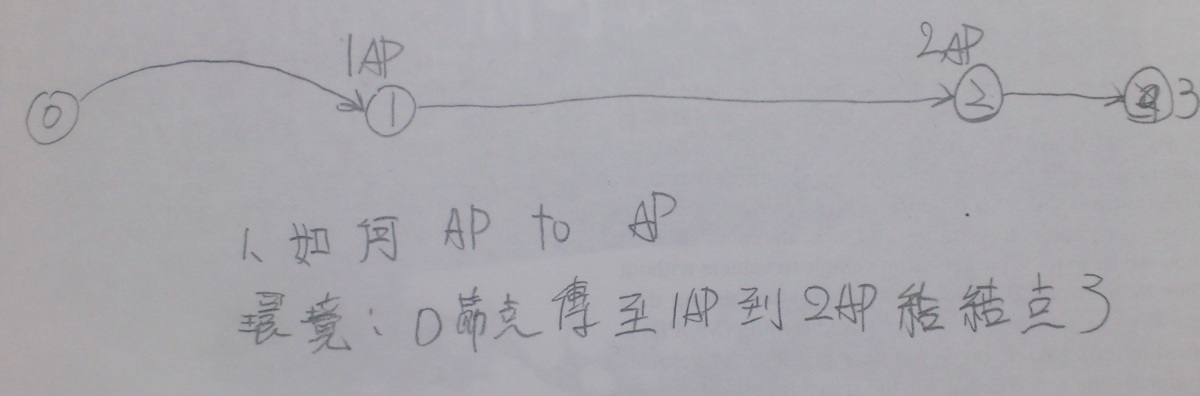 1AP 2AP
0 1 2 3
1、如何 AP to AP
環境：0節点傳至1AP到2AP給結点3